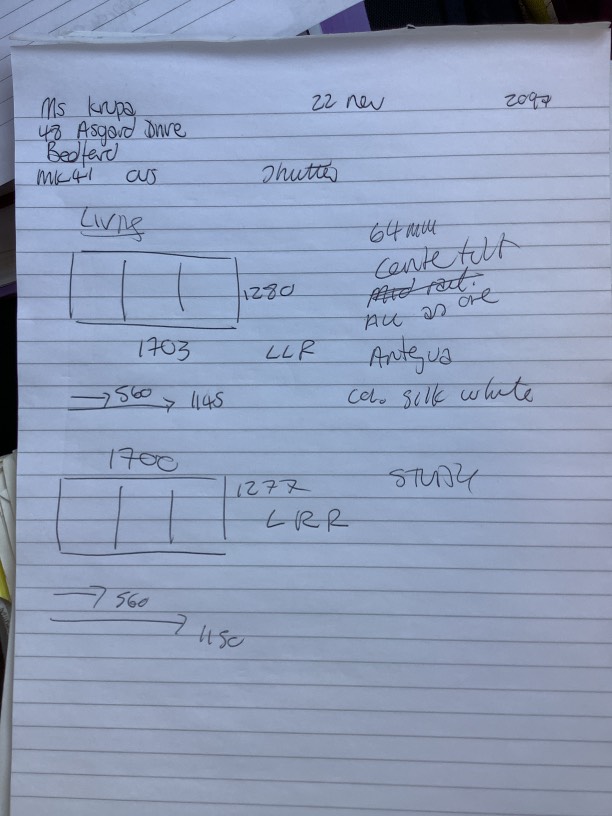 Ms Krupa 22 nov 2097
48 Asgard Drive
Bedford
MK41 Shutter
Living
64mm
Centre tilt
Mid rail.
1280
All as one
1703 LLR Antegua
560 1145 Col. silk white
1700
1277 STUDY
LRR
560
1150